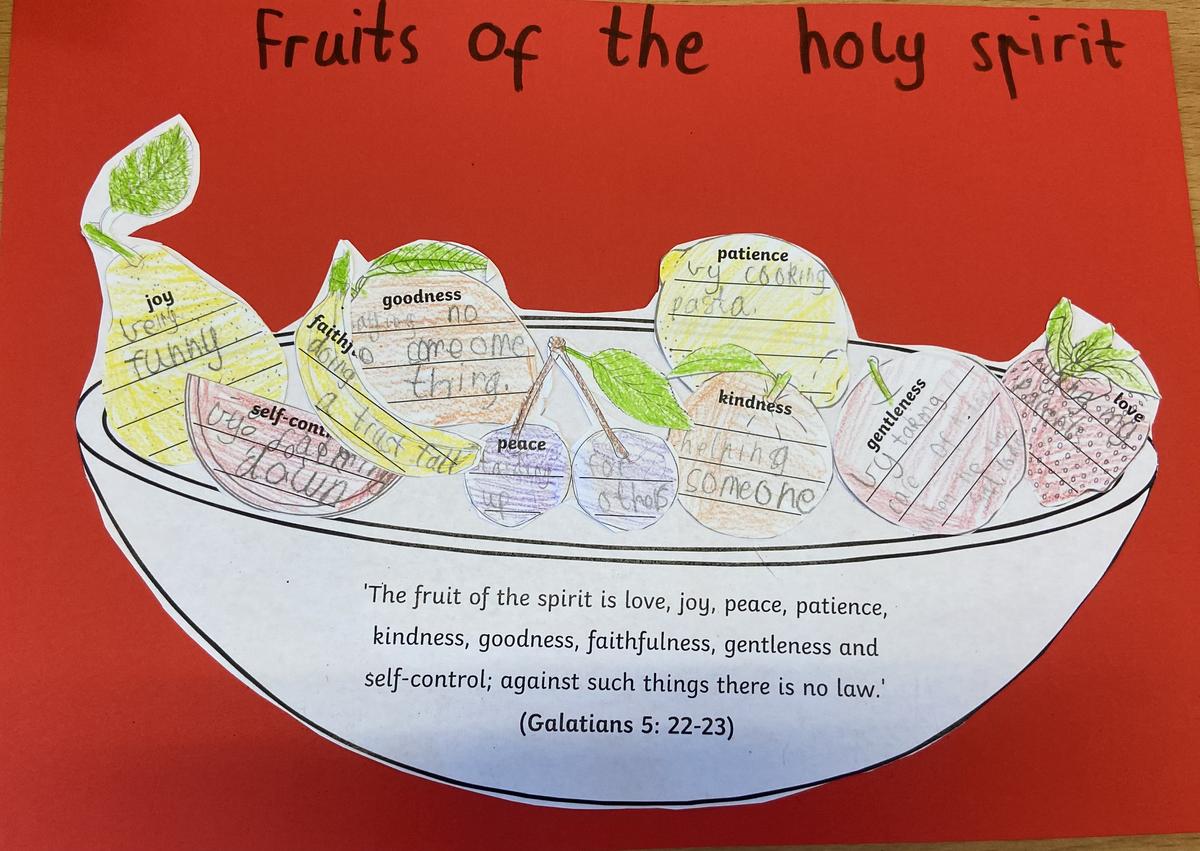 Fruits of the holy spirit
joy
being
funny
self-cont
down
faithf
doing
a trust fall
goodness
no
someone
thing.
peace
up for
others
patience
by cooking
pasta.
kindness
helping
someone
gentleness
by taking
love
'The fruit of the spirit is love, joy, peace, patience,
kindness, goodness, faithfulness, gentleness and
self-control; against such things there is no law.'
(Galatians 5: 22-23)